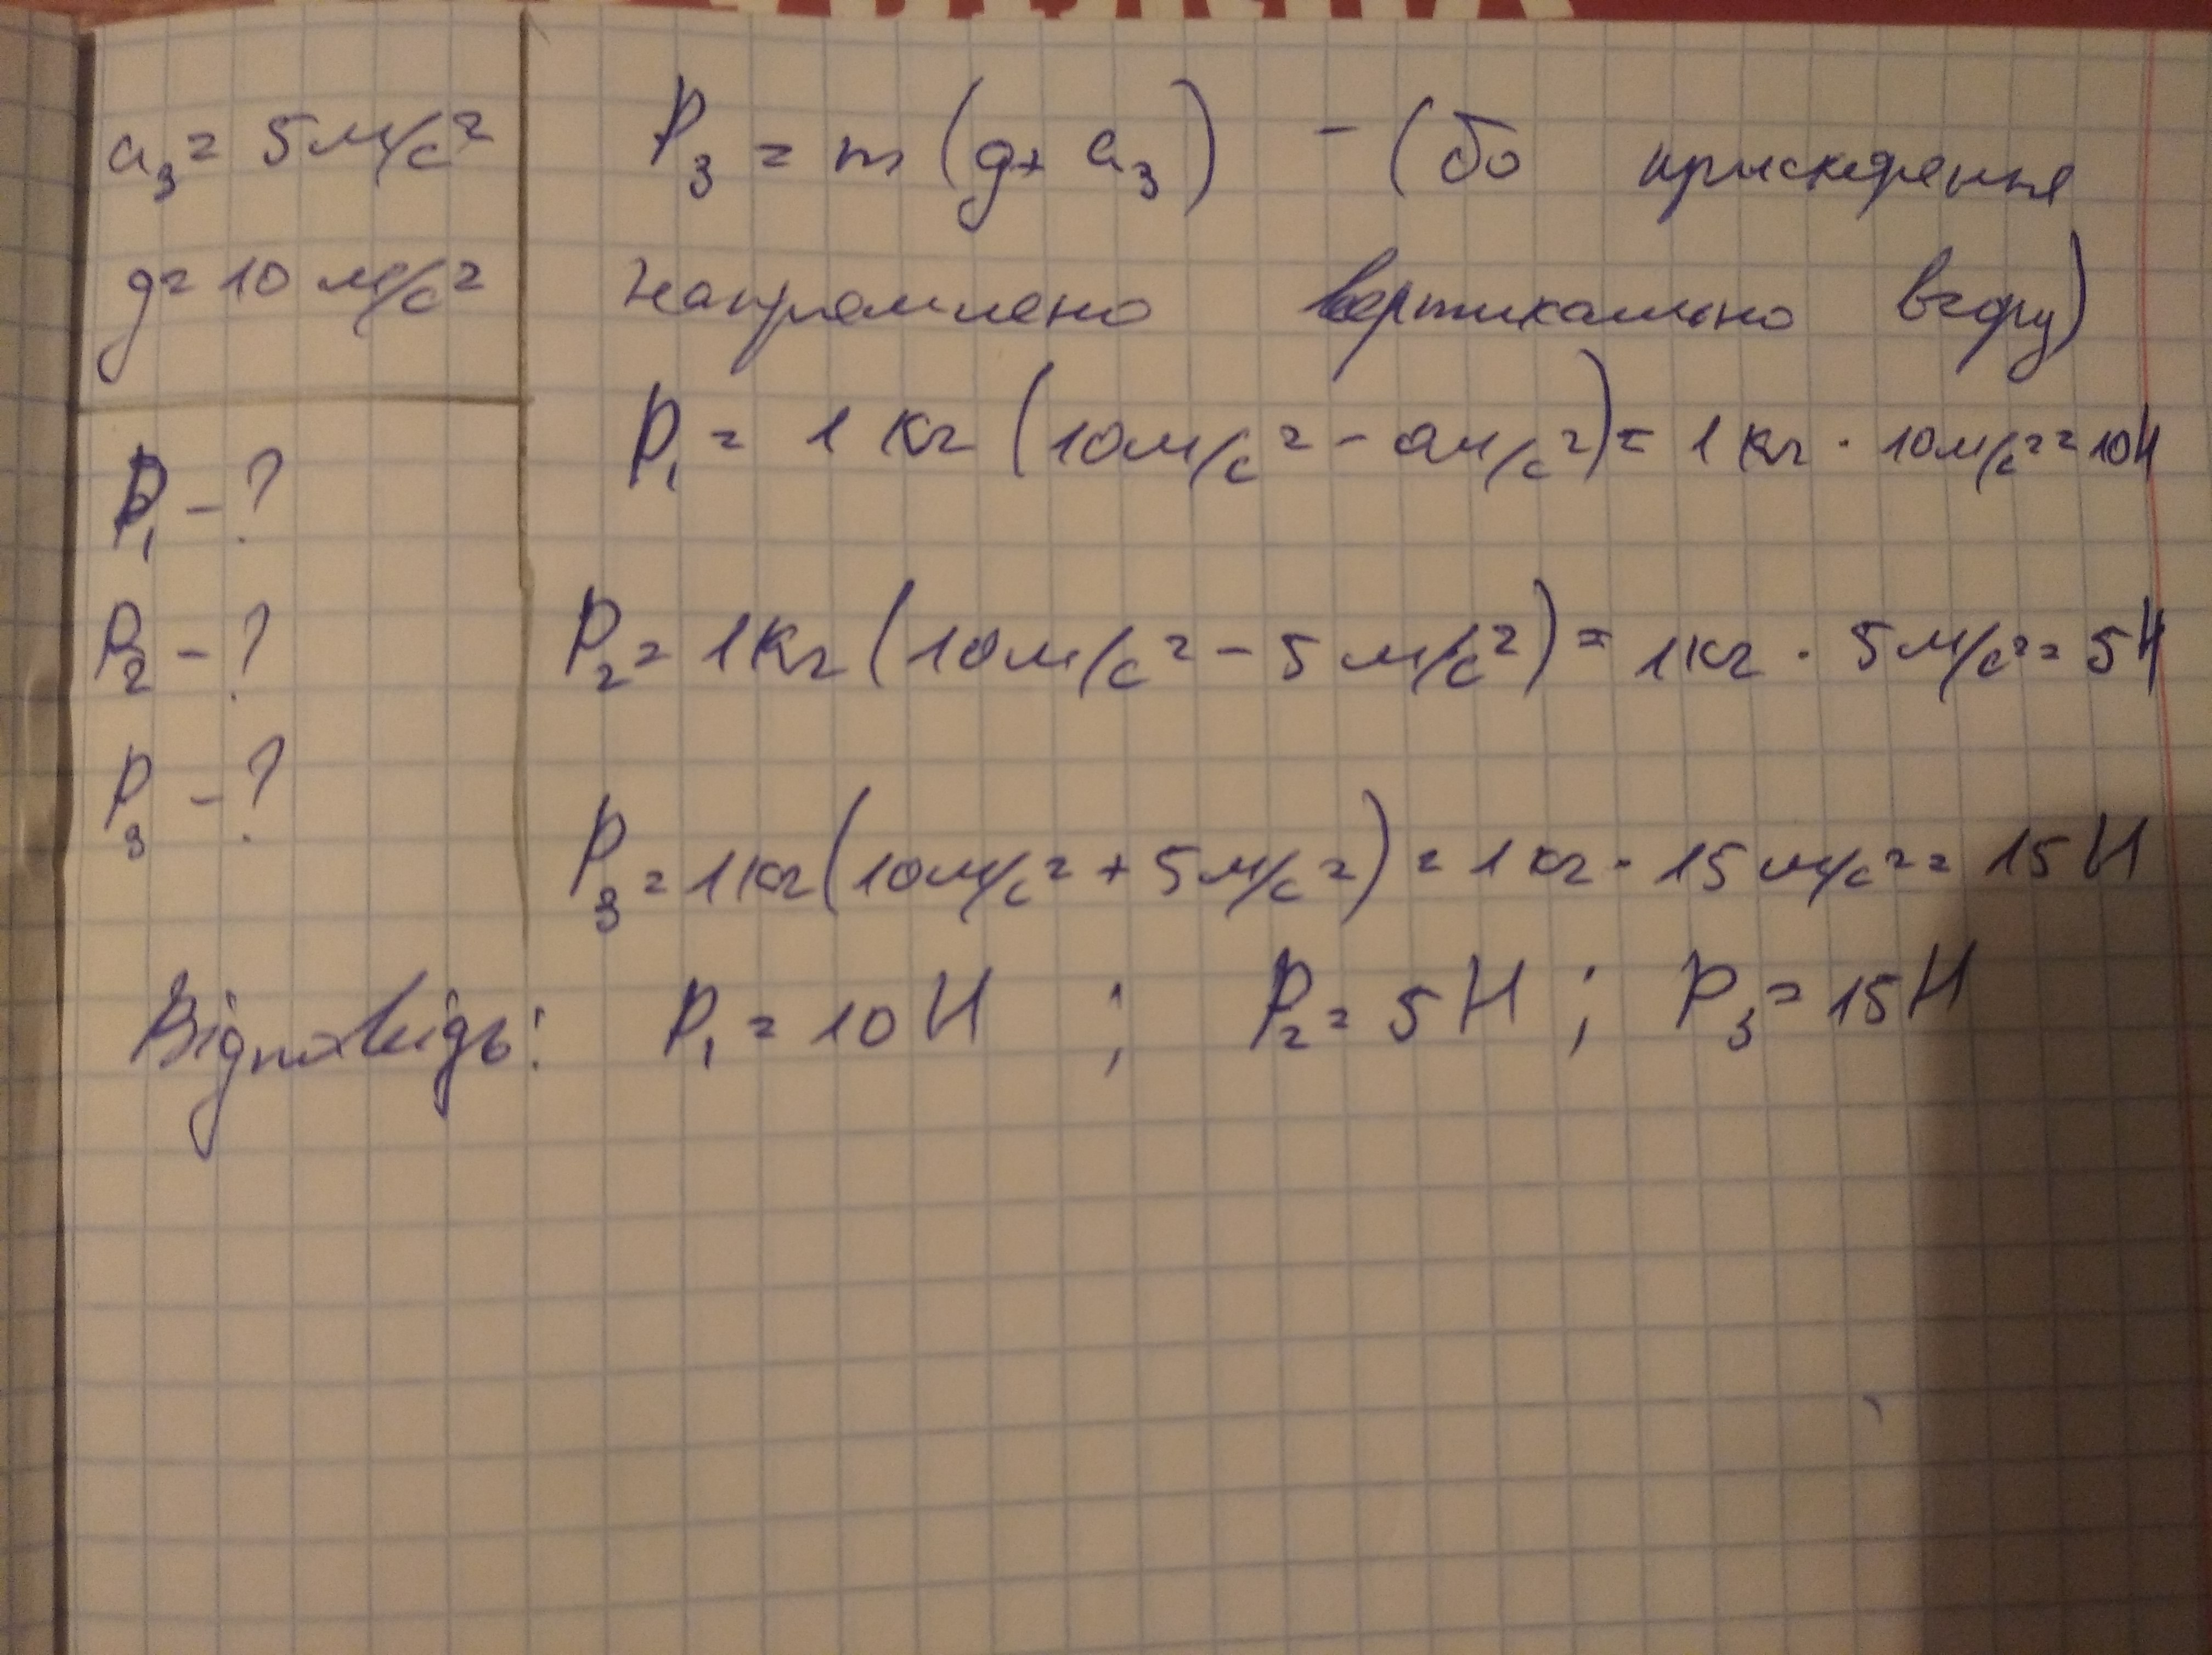 a₃ = 5 м/с²
P₃ = m (g + a₃) - (бо прискорення
g = 10 м/с²
напрямлено вертикально вгору)
P₁ = 1 кг (10 м/с² - 0 м/с²) = 1 кг · 10 м/с² = 10 Н
P₁ - ?
P₂ - ?
P₂ = 1 кг (10 м/с² - 5 м/с²) = 1 кг · 5 м/с² = 5 Н
P₃ - ?
P₃ = 1 кг (10 м/с² + 5 м/с²) = 1 кг · 15 м/с² = 15 Н
Відповідь: P₁ = 10 Н ; P₂ = 5 Н ; P₃ = 15 Н